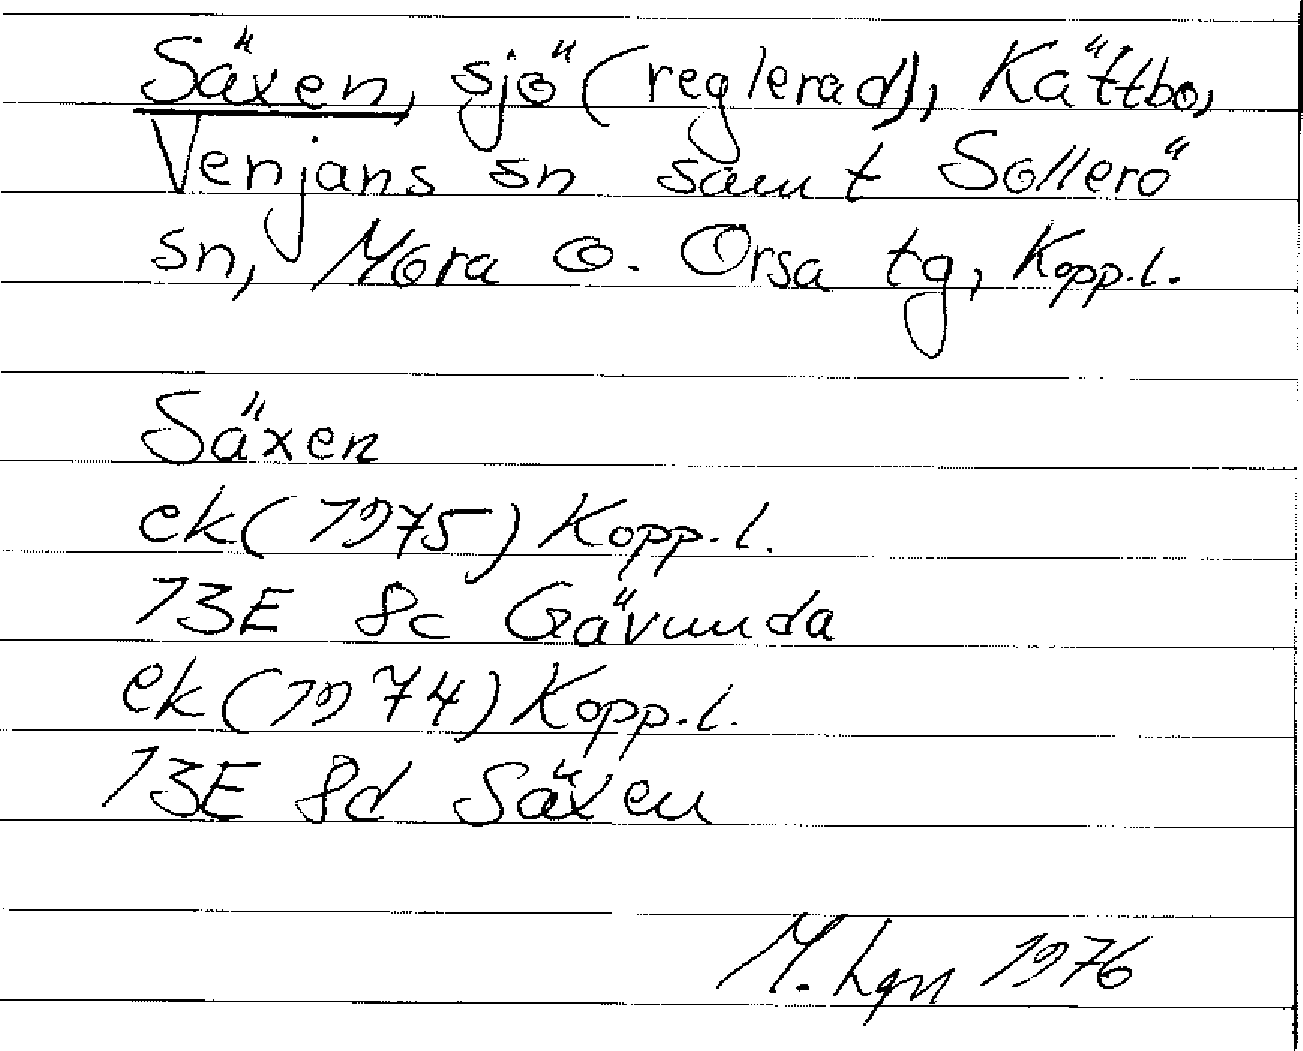 Säxen, sjö (reglerad), Kättbo,
Venjans sn samt Sollerö
sn, Mora o. Orsa tg, Kopp.l.
Säxen
ek (1975) Kopp.l.
13E 8c Gävunda
ek (1974) Kopp.l.
13E 8d Säxen
M. Lgn 1976